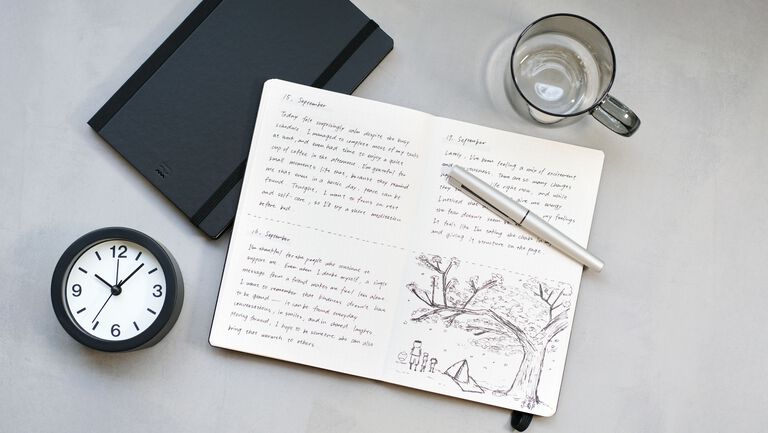 15. September
Today felt surprisingly calm despite the busy
schedule. I managed to complete most of my tasks
at work, and even had time to enjoy a quiet
cup of coffee in the afternoon. I'm grateful for
small moments like that, because they remind
me that even in a hectic day, peace can be
found. Tonight, I want to focus on rest
and self-care, so I'll try a short meditation
before bed.
16. September
I'm thankful for the people who continue to
support me. Even when I doubt myself, a single
message from a friend makes me feel less alone.
I want to remember that kindness doesn't have
to be grand — it can be found everyday
conversations, in smiles, and in shared laughter.
Moving forward, I hope to be someone who can also
bring that warmth to others.
September
Lately, I've been feeling a mix of excitement
and nervousness. There are so many changes
life right now, and while
they give me energy
I noticed that my feelings
on paper doesn't
It feels like I'm taking the chaos in my
and giving it structure on the page.
12
3
6
9